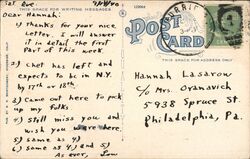 Sat. Eve
Dear Hannah:
THIS SPACE FOR WRITING MESSAGES
1) thanks for your nice
letter. I will answer
it in detail the first
part of this week
2) Chet has left and
expects to be in N.Y.
by 17th or 18th.
3) Came out here to pick
up my folks.
4) Still miss you and
wish you were here.
5) same as 4)
6) same as 4) and 5)
As ever, Lou
POST CARD
THIS SPACE FOR ADDRESS ONLY
Hannah Lasarow
c/o Mrs. Oranavich
5938 Spruce St.
Philadelphia, Pa.